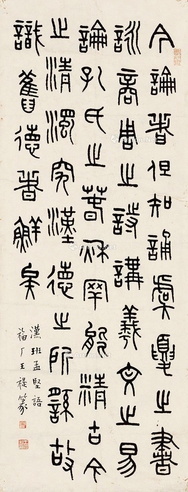 今論者但知誦虞夏之書
詠商周之詩講羲文之易
論孔氏之春秋罕能清古今
之清濁究漢德之所繇故
識舊德者鮮矣
漢班孟堅語
福厂王禔篆